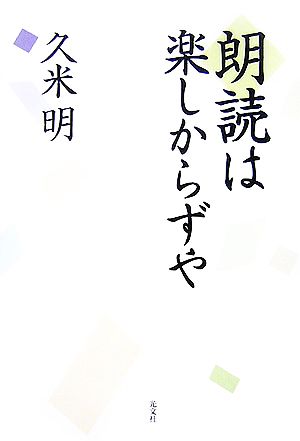 朗読は
楽しからずや
久米明
光文社